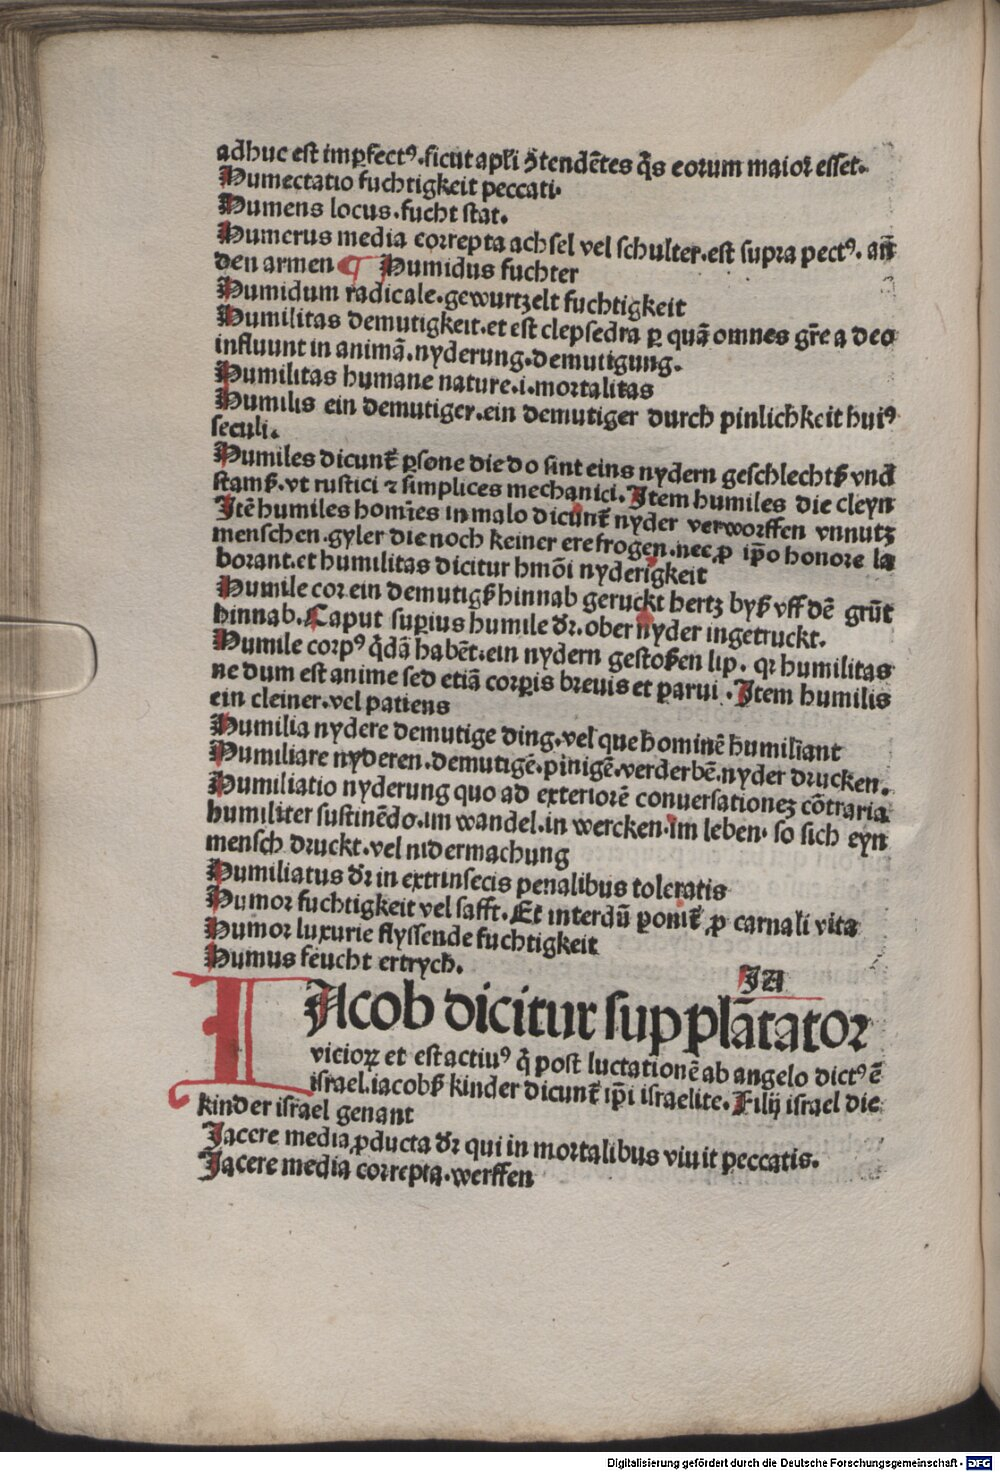 adhuc est imꝑfectꝰ.sicut apl̄i ꝯtendētes q̄s eorum maior esset.
Humectatio fuchtigkeit peccati.
Humens locus.fucht stat.
Humerus media correpta achsel vel schulter.est supra pectꝰ. an̄
den armen ¶ Humidus fuchter
Humidum radicale.gewurtzelt fuchtigkeit
Humilitas demutigkeit.et est clepsedra ꝑ quā omnes gr̄e a deo
influunt in animā.nyderung.demutigung.
Humilitas humane nature.i.mortalitas
Humilis ein demutiger.ein demutiger durch pinlichkeit huiꝰ
seculi.
Humiles dicunt̄ ꝑsone die do sint eins nydern geschlechtß vnd
stamß.vt rustici ⁊ simplices mechanici.Item humiles die cleyn
Itē humiles homīes in malo dicunt̄ nyder verworffen vnnutz
menschen.gyler die noch keiner ere frogen.nec ꝓ ip̄o honore la
borant.et humilitas dicitur hmōi nyderigkeit
Humile cor ein demutigß hinnab geruckt hertz byß vff dē grūt
hinnab.Caput suꝑius humile dr̄.ober nyder ingetruckt.
Humile corpꝰ q̄dā habēt.ein nydern gestoßen lip. qr humilitas
ne dum est anime sed etiā corꝑis breuis et parui.Item humilis
ein cleiner.vel patiens
Humilia nydere demutige ding.vel que hominē humiliant
Humiliare nyderen.demutigē.pinigē.verderbē.nyder drucken.
Humiliatio nyderung quo ad exteriorē conuersationeꝫ cōtraria
humiliter sustinēdo.im wandel.in wercken.im leben.so sich eyn
mensch druckt.vel nidermachung
Humiliatus dr̄ in extrinsecis penalibus toleratis
Humor fuchtigkeit vel safft.Et interdū ponit̄ ꝓ carnali vita
Humor luxurie flyssende fuchtigkeit
Humus feucht ertrych.
JA
IAcob dicitur supplātator
vicioꝝ et est actiuꝰ q̄ post luctationē ab angelo dictꝰ ē
israel.iacobß kinder dicunt̄ ip̄i israelite.Filij israel die
kinder israel genant
Jacere media ꝓducta dr̄ qui in mortalibus viuit peccatis.
Jacere media correpta.werffen
Digitalisierung gefördert durch die Deutsche Forschungsgemeinschaft - DFG